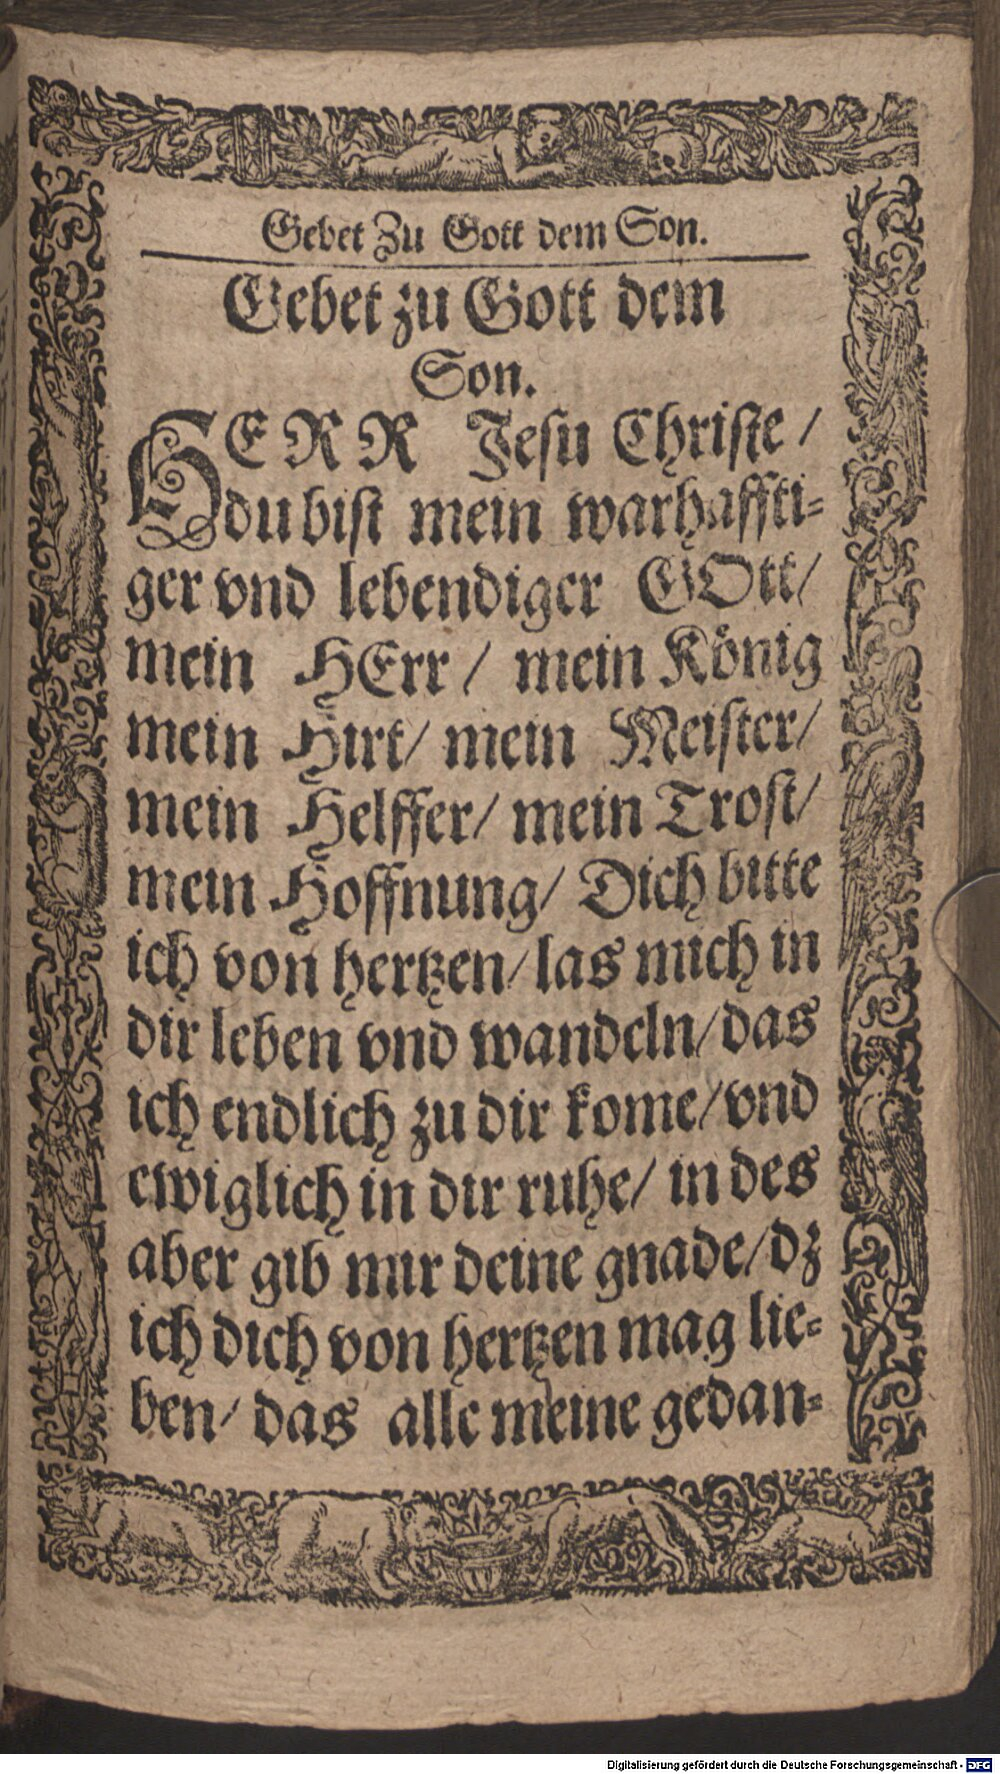 Gebet Zu Gott dem Son.
Gebet zu Gott dem
Son.
HERR Jesu Christe /
du bist mein warhaffti-
ger vnd lebendiger GOtt /
mein HErr / mein König
mein Hirt / mein Meister /
mein Helffer / mein Trost /
mein Hoffnung / Dich bitte
ich von hertzen / las mich in
dir leben vnd wandeln / das
ich endlich zu dir kome / vnd
ewiglich in dir ruhe / in des
aber gib mir deine gnade / dz
ich dich von hertzen mag lie-
ben / das alle meine gedan-
Digitalisierung gefördert durch die Deutsche Forschungsgemeinschaft - DFG